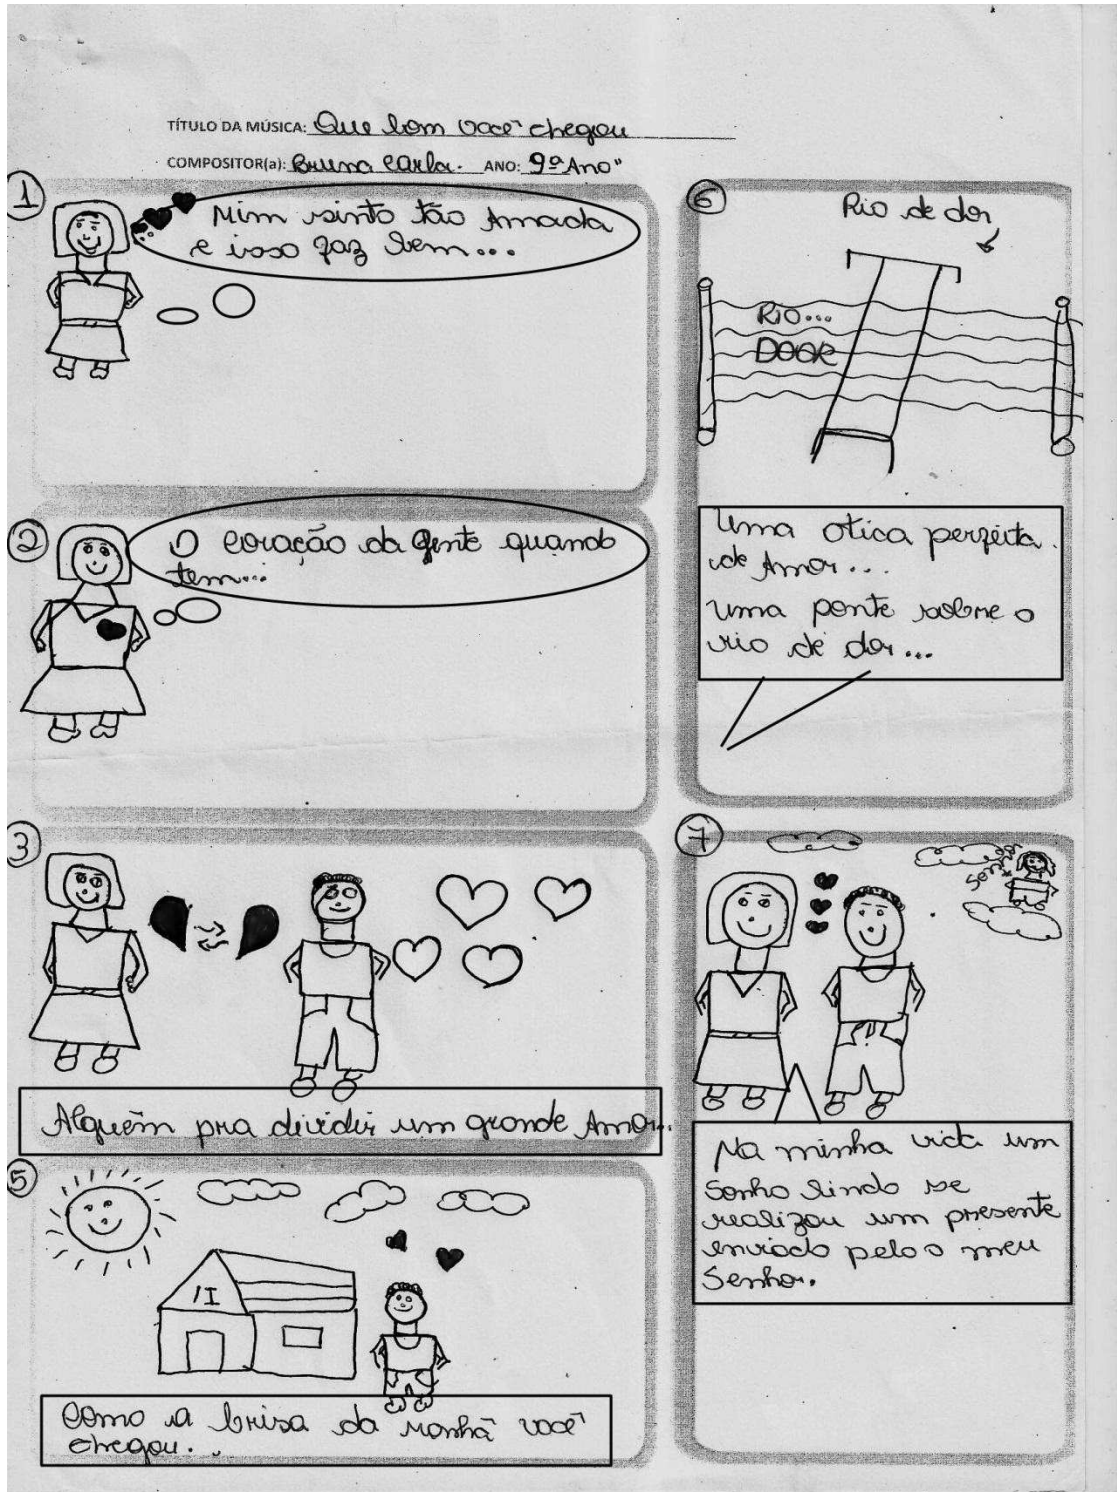 TÍTULO DA MÚSICA: Que bom você chegou
COMPOSITOR(a): Bruna Carla. ANO: 9º Ano"
1
Mim sinto tão Amada
e isso faz bem...
2
O coração da gente quando
tem...
3
Alguém pra dividir um grande Amor...
5
Como a brisa da manhã você
chegou...
6
Rio de dor
RIO...
DOOR
Uma otica perfeita
de Amor...
uma ponte sobre o
rio de dor...
7
Senhor
Na minha vida um
Sonho lindo se
realizou um presente
enviado pelo o meu
Senhor.